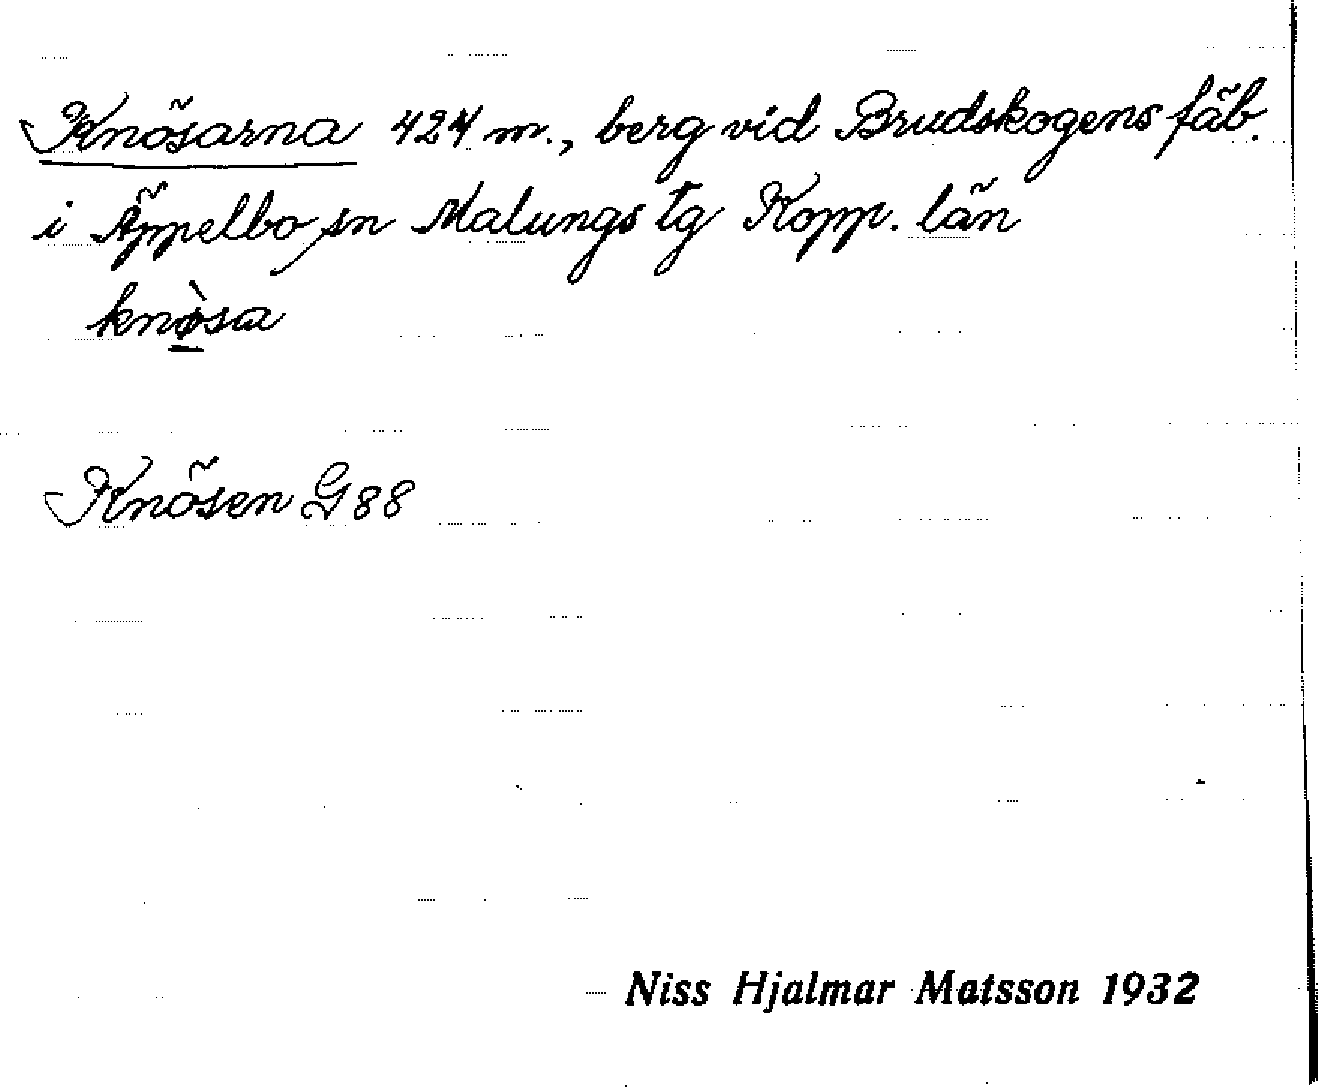 Knösarna 424 m., berg vid Brudskogens fäb.
i Äppelbo sn Malungs tg Kopp. län
knø̀sa
Knösen G 88
Niss Hjalmar Matsson 1932